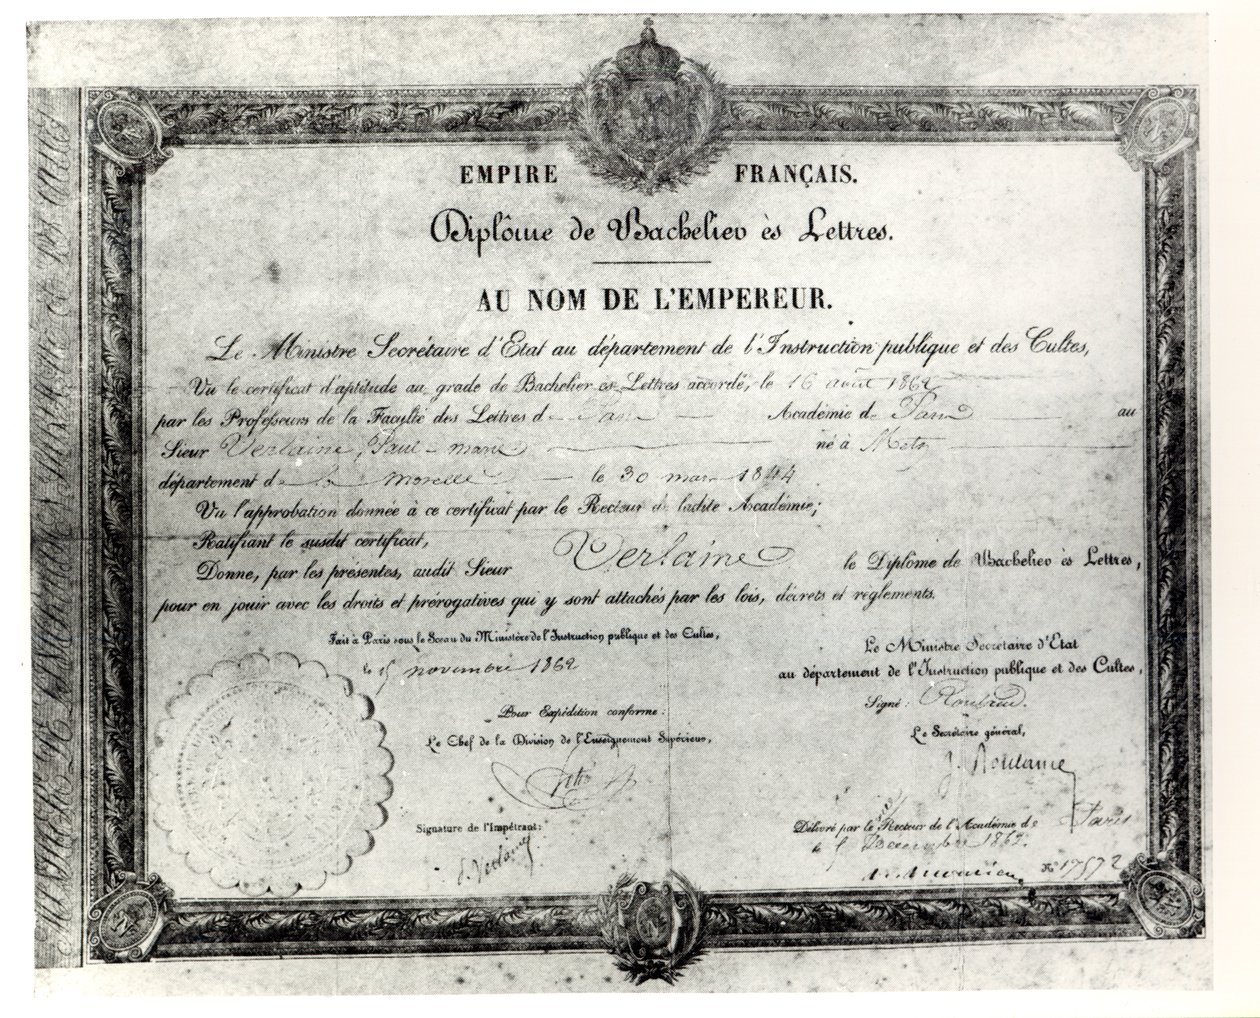 EMPIRE FRANÇAIS.
Diplôme de Bachelier ès Lettres.
AU NOM DE L'EMPEREUR.
Le Ministre Secrétaire d'Etat au département de l'Instruction publique et des Cultes,
Vu le certificat d'aptitude au grade de Bachelier ès Lettres accordé, le 16 août 1862
par les Professeurs de la Faculté des Lettres d Paris Académie d Paris au
Sieur Verlaine, Paul-Marie né à Metz
département d la Moselle le 30 mars 1844
Vu l'approbation donnée à ce certificat par le Recteur de ladite Académie;
Ratifiant le susdit certificat,
Donne, par les présentes, audit Sieur Verlaine le Diplôme de Bachelier ès Lettres,
pour en jouir avec les droits et prérogatives qui y sont attachés par les lois, décrets et règlements.
Fait à Paris sous le Sceau du Ministère de l'Instruction publique et des Cultes,
le 15 novembre 1862
Le Ministre Secrétaire d'Etat
au département de l'Instruction publique et des Cultes,
Signé: Rouland.
Pour Expédition conforme:
Le Chef de la Division de l'Enseignement Supérieur,
Le Secrétaire général,
Signature de l'Impétrant:
P. Verlaine
Délivré par le Recteur de l'Académie de Paris
le Décembre 1862.
No 17572